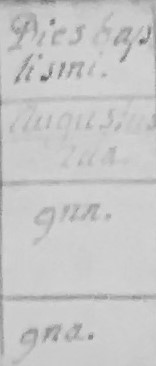 Dies bap
tismi.
Augustus
2da.
9na.
9na.